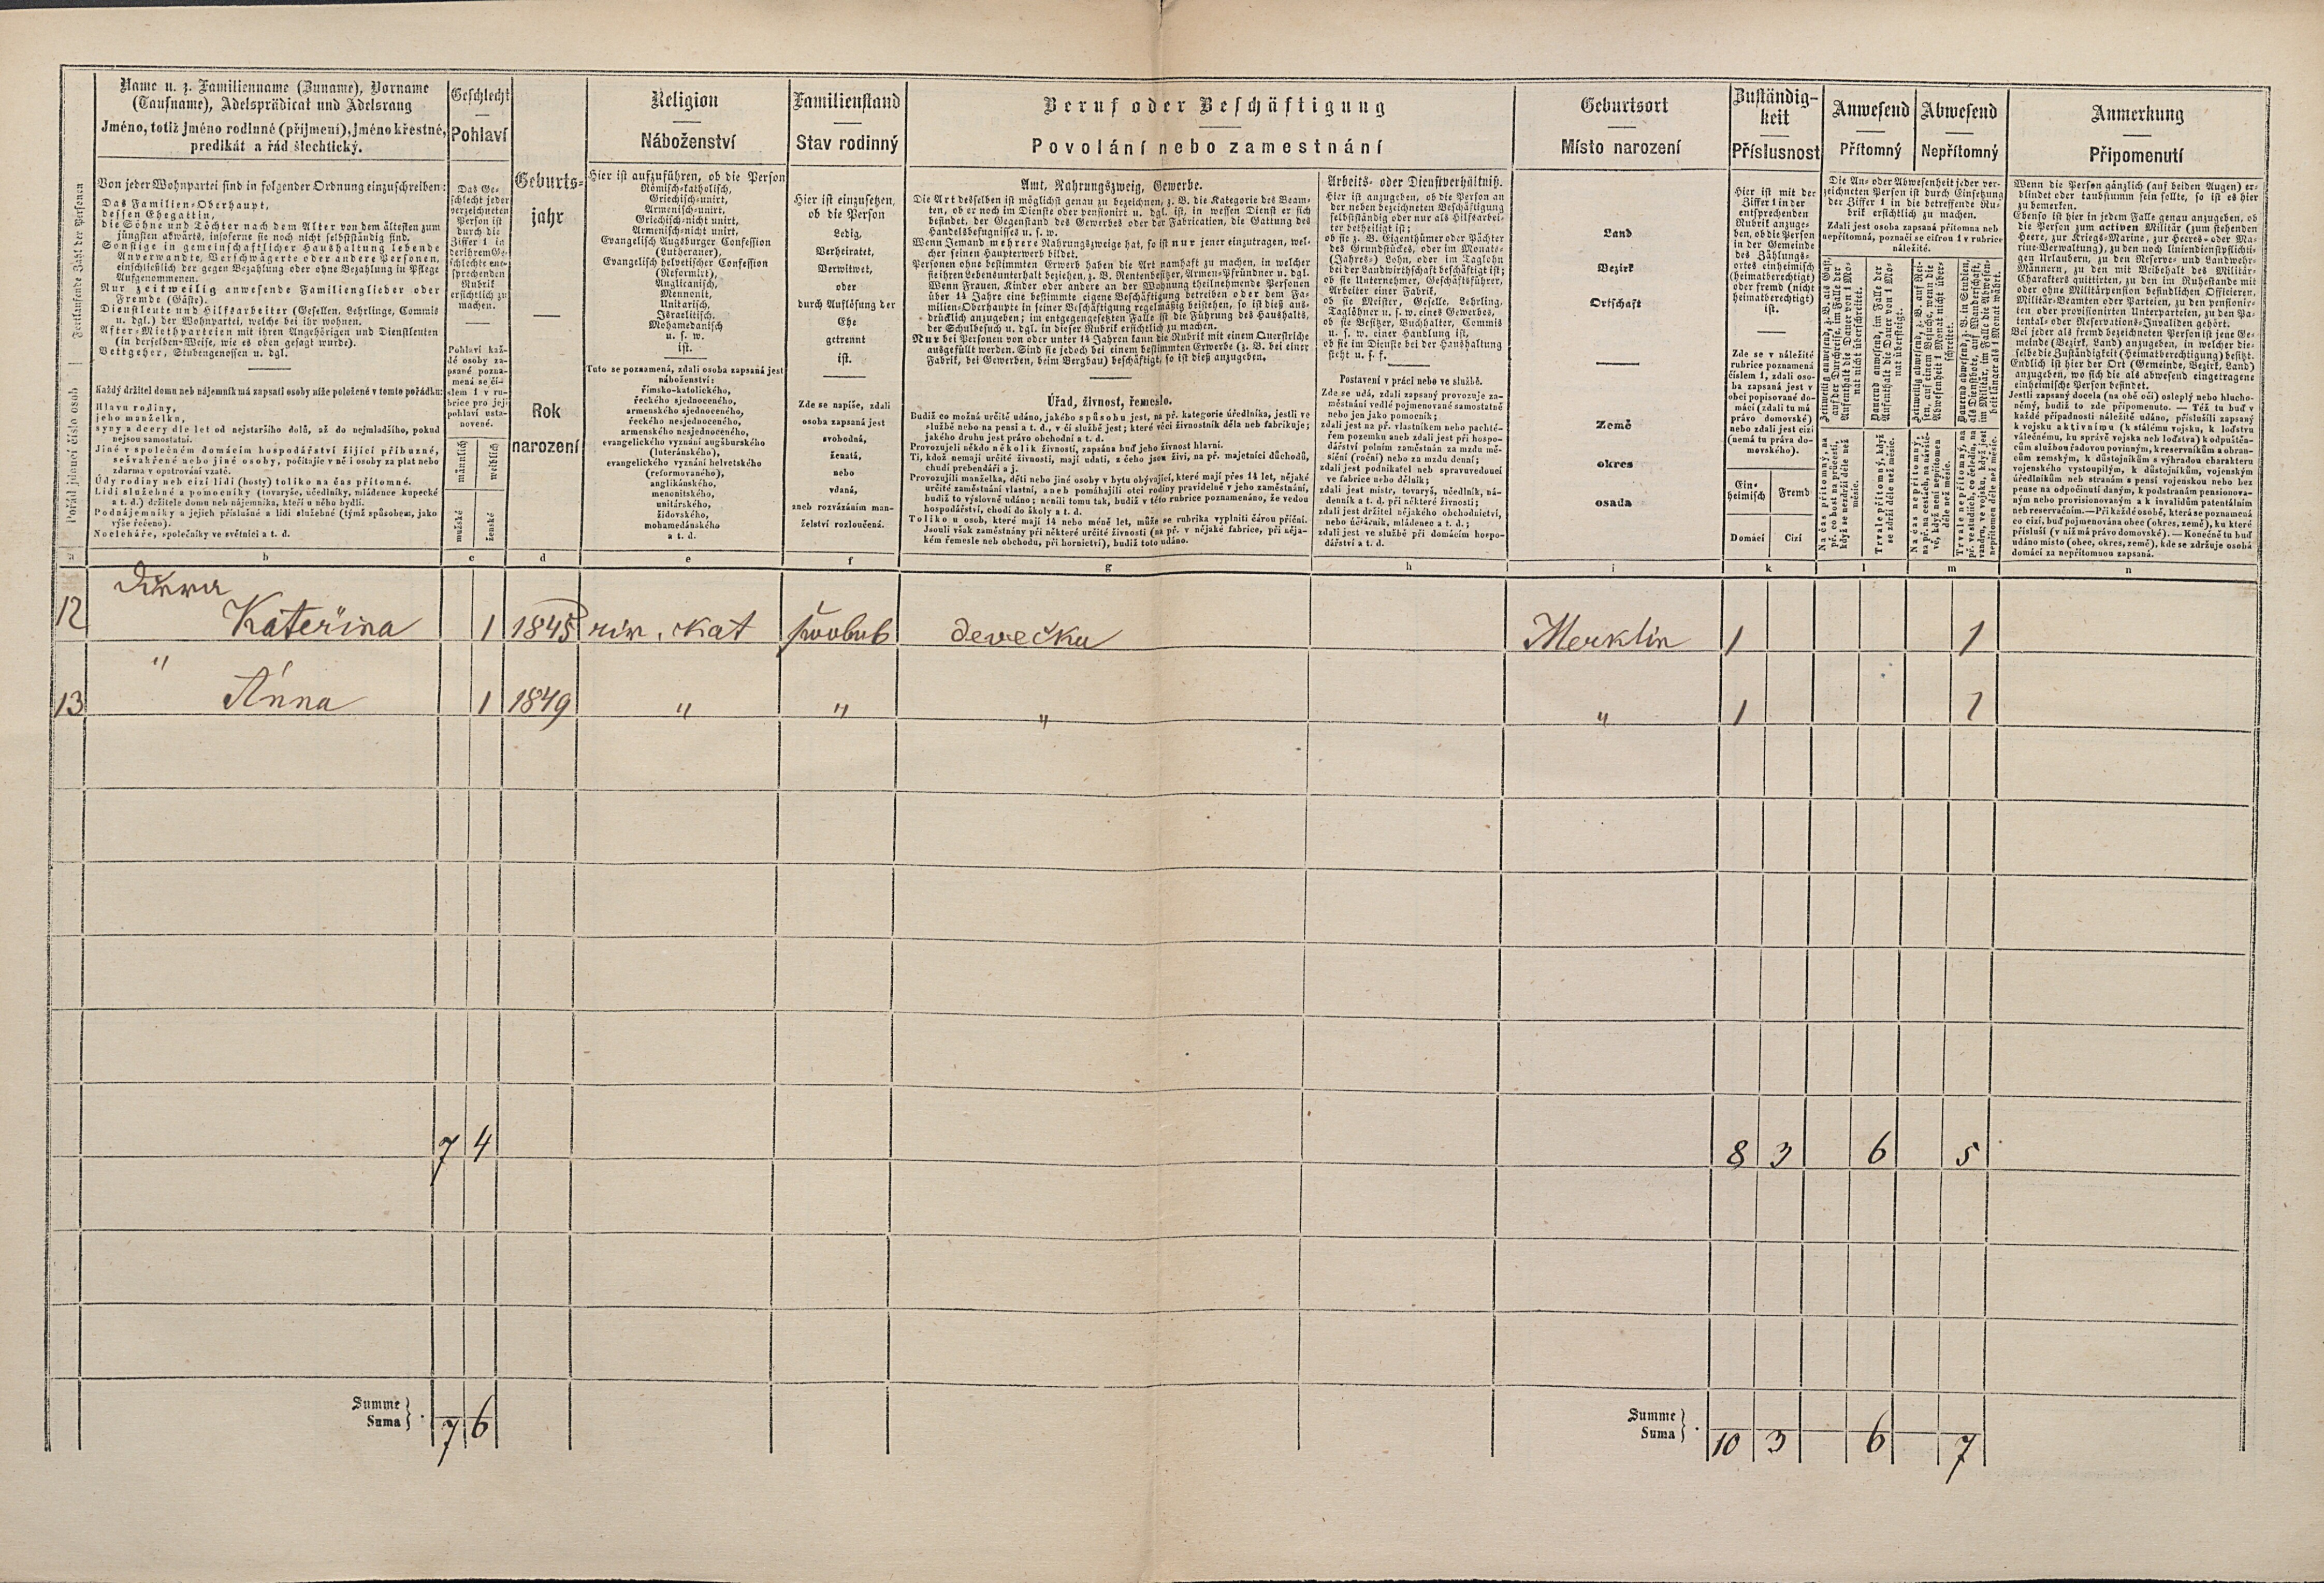 Name u. z. Familienname (Zuname), Vorname
(Taufname), Adelsprädicat und Adelsrang
Jméno, totiž jméno rodinné (příjmení), jméno křestné,
predikát a řád šlechtický.
Geschlecht
Pohlaví
Geburts-
jahr
Rok
narození
Religion
Náboženství
Familienstand
Stav rodinný
Beruf oder Beschäftigung
Povolání nebo zamestnání
Geburtsort
Místo narození
Zuständig-
keit
Příslusnost
Anwesend
Přítomný
Abwesend
Nepřítomný
Anmerkung
Připomenutí
Fortlaufende Zahl der Personen
Pořád jdoucí číslo osob
Von jeder Wohnpartei sind in folgender Ordnung einzuschreiben:
Das Familien-Oberhaupt,
dessen Ehegattin,
die Söhne und Töchter nach dem Alter von dem ältesten zum
jüngsten abwärts, insoferne sie noch nicht selbstständig sind.
Sonstige in gemeinschaftlicher Haushaltung lebende
Anverwandte, Verschwägerte oder andere Personen,
einschließlich der gegen Bezahlung oder ohne Bezahlung in Pflege
Aufgenommenen.
Nur zeitweilig anwesende Familienglieder oder
Fremde (Gäste).
Dienstleute und Hilfsarbeiter (Gesellen, Lehrlinge, Commis
u. dgl.) der Wohnpartei, welche bei ihr wohnen.
After-Miethparteien mit ihren Angehörigen und Dienstleuten
(in derselben Weise, wie es oben gesagt wurde).
Bettgeher, Studengenossen u. dgl.
Každý držitel domu neb nájemník má zapsati osoby níže položené v tomto pořádku:
Hlavu rodiny,
jeho manželku,
syny a dcery dle let od nejstaršího dolů, až do nejmladšího, pokud
nejsou samostatni.
Jiné v společném domácím hospodářství žijící příbuzné,
sešvakřené nebo jiné osoby, počítajíc v ně i osoby za plat nebo
zdarma v opatrování vzaté.
Údy rodiny neb cizí lidi (hosty) toliko na čas přítomné.
Lidi služebné a pomocníky (tovaryše, učedlníky, mládence kupecké
a t. d.) držitele domu neb nájemníka, kteří u něho bydlí.
Podnájemníky a jejich příslušné a lidi služebné (týmž spůsobem, jako
výše řečeno).
Nocleháře, společníky ve světnici a t. d.
Das Ge-
schlecht jeder
verzeichneten
Person ist
durch die
Ziffer 1 in
der ihrem Ge-
schlechte ent-
sprechenden
Rubrik
ersichtlich zu
machen.
Pohlaví kaž-
dé osoby za-
psané pozna-
mená se čí-
slem 1 v ru-
brice pro její
pohlaví usta-
novené.
männlich
weiblich
mužské
ženské
Hier ist aufzuführen, ob die Person
Römisch-katholisch,
Griechisch-unirt,
Armenisch-unirt,
Griechisch-nicht unirt,
Armenisch-nicht unirt,
Evangelisch Augsburger Confession
(Lutheraner),
Evangelisch helvetischer Confession
(Reformirt),
Anglicanisch,
Mennonit,
Unitarisch,
Israelitisch,
Mohamedanisch
u. s. w.
ist.
Tuto se poznamená, zdali osoba zapsaná jest
náboženství:
římsko-katolického,
řeckého sjednoceného,
armenského sjednoceného,
řeckého nesjednoceného,
armenského nesjednoceného,
evangelického vyznání augšburského
(luteránského),
evangelického vyznání helvetského
(reformovaného),
anglikánského,
menonitského,
unitárského,
židovského,
mohamedánského
a t. d.
Hier ist einzusetzen,
ob die Person
Ledig,
Verheiratet,
Verwitwet,
oder
durch Auflösung der
Ehe
getrennt
ist.
Zde se napíše, zdali
osoba zapsaná jest
svobodná,
ženatá,
nebo
vdaná,
aneb rozvázáním man-
želství rozloučená.
Amt, Nahrungszweig, Gewerbe.
Die Art desselben ist möglichst genau zu bezeichnen, z. B. die Kategorie des Beam-
ten, ob er noch im Dienste oder pensionirt u. dgl. ist, in wessen Dienst er sich
befindet, der Gegenstand des Gewerbes oder der Fabrication, die Gattung des
Handelsbefugnisses u. s. w.
Wenn Jemand mehrere Nahrungszweige hat, so ist nur jener einzutragen, wel-
cher seinen Haupterwerb bildet.
Personen ohne bestimmten Erwerb haben die Art namhaft zu machen, in welcher
sie ihren Lebensunterhalt beziehen, z. B. Rentenbesitzer, Armen-Pfründner u. dgl.
Wenn Frauen, Kinder oder andere an der Wohnung theilnehmende Personen
über 14 Jahre eine bestimmte eigene Beschäftigung betreiben oder dem Fa-
milien-Oberhaupte in seiner Beschäftigung regelmäßig beistehen, so ist dieß aus-
drücklich anzugeben; im entgegengesetzten Falle ist die Führung des Haushalts,
der Schulbesuch u. dgl. in dieser Rubrik ersichtlich zu machen.
Nur bei Personen von oder unter 14 Jahren kann die Rubrik mit einem Querstriche
ausgefüllt werden. Sind sie jedoch bei einem bestimmten Erwerbe (z. B. bei einer
Fabrik, bei Gewerben, beim Bergbau) beschäftigt, so ist dieß anzugeben.
Úřad, živnost, řemeslo.
Budiž co možná určitě udáno, jakého spůsobu jest, na př. kategorie úředlníka, jestli ve
službě nebo na pensi a t. d., v čí službě jest; které věci živnostník dělá neb fabrikuje;
jakého druhu jest právo obchodní a t. d.
Provozuje-li někdo několik živností, zapsána buď jeho živnost hlavní.
Ti, kdož nemají určité živnosti, mají udati, z čeho jsou živi, na př. majetníci důchodů,
chudí prebendáři a j.
Provozují-li manželka, děti nebo jiné osoby v bytu obývající, které mají přes 14 let, nějaké
určité zaměstnání vlastní, aneb pomáhají-li otci rodiny pravidelně v jeho zaměstnání,
budiž to výslovně udáno; není-li tomu tak, budiž v této rubrice poznamenáno, že vedou
hospodářství, chodí do školy a t. d.
Toliko u osob, které mají 14 nebo méně let, může se rubrika vyplniti čárou příční.
Jsou-li však zaměstnány při některé určité živnosti (na př. v nějaké fabrice, při něja-
kém řemesle neb obchodu, při hornictví), budiž toto udáno.
Arbeits- oder Dienstverhältniß.
Hier ist anzugeben, ob die Person an
der neben bezeichneten Beschäftigung
selbstständig oder nur als Hilfsarbei-
ter betheiligt ist;
ob sie z. B. Eigenthümer oder Pächter
des Grundstückes, oder im Monats-
(Jahres-) Lohn, oder im Taglohn
bei der Landwirthschaft beschäftigt ist;
ob sie Unternehmer, Geschäftsführer,
Arbeiter einer Fabrik,
ob sie Meister, Geselle, Lehrling,
Taglöhner u. s. w. eines Gewerbes,
ob sie Besitzer, Buchhalter, Commis
u. s. w. einer Handlung ist,
ob sie im Dienste bei der Haushaltung
steht u. s. f.
Postavení v práci nebo ve službě.
Zde se udá, zdali zapsaný provozuje za-
městnání vedlé pojmenované samostatně
nebo jen jako pomocník;
zdali jest na př. vlastníkem nebo pachté-
řem pozemku aneb zdali jest při hospo-
dářství polním zaměstnán za mzdu mě-
síční (roční) nebo za mzdu denní;
zdali jest podnikatel neb spravuvedoucí
ve fabrice nebo dělník;
zdali jest mistr, tovaryš, učedlník, ná-
denník a t. d. při některé živnosti;
zdali jest držitel nějakého obchodnictví,
nebo účtárník, mládenec a t. d.;
zdali jest ve službě při domácím hospo-
dářství a t. d.
Land
Bezirk
Ortschaft
Země
okres
osada
Hier ist mit der
Ziffer 1 in der
entsprechenden
Rubrik anzuge-
ben, ob die Person
in der Gemeinde
des Zählungs-
ortes einheimisch
(heimatberechtigt)
oder fremd (nicht
heimatberechtigt)
ist.
Zde se v náležité
rubrice poznamená
číslem 1, zdali oso-
ba zapsaná jest v
obci popisované do-
mácí (zdali tu má
právo domovské)
nebo zdali jest cizí
(nemá tu práva do-
movského).
Ein-
heimisch
Fremd
Domácí
Cizí
Die An- oder Abwesenheit jeder ver-
zeichneten Person ist durch Einsetzung
der Ziffer 1 in die betreffende Ru-
brik ersichtlich zu machen.
Zdali jest osoba zapsaná přítomna neb
nepřítomná, poznačí se cifrou 1 v rubrice
náležité.
Zeitweilig anwesend, z. B. als Gast,
auf der Durchreise, im Falle der
Aufenthalt die Dauer von 1 Mo-
nat nicht überschreitet.
Dauernd anwesend, im Falle der
Aufenthalt die Dauer von 1 Mo-
nat übersteigt.
Zeitweilig abwesend, z. B. auf Rei-
sen, auf einem Besuche, wenn die
Abwesenheit 1 Monat nicht über-
schreitet.
Dauernd abwesend, z. B. in Studien,
als Dienstbote, auf Wanderschaft,
im Militär, im Falle die Abwesen-
heit länger als 1 Monat währt.
Na čas přítomný, na
př. co host na průčestí,
když se nezdrží déle než
měsíc.
Trvale přítomný, když
se zdrží déle než měsíc.
Na čas nepřítomný,
na př. na cestách, na návště-
vě, když není nepřítomen
déle než měsíc.
Trvale nepřítomný, na
př. ve studiích, co čeledín, na
vandru, ve vojsku, když jest
nepřítomen déle než měsíc.
Wenn die Person gänzlich (auf beiden Augen) er-
blindet oder taubstumm sein sollte, so ist es hier
zu bemerken.
Ebenso ist hier in jedem Falle genau anzugeben, ob
die Person zum activen Militär (zum stehenden
Heere, zur Kriegs-Marine, zur Heeres- oder Ma-
rine-Verwaltung), zu den noch liniendienstpflichti-
gen Urlaubern, zu den Reserve- und Landwehr-
Männern, zu den mit Beibehalt des Militär-
Charakters quittirten, zu den im Ruhestande mit
oder ohne Militärpension befindlichen Officieren,
Militär-Beamten oder Parteien, zu den pensionir-
ten oder provisionirten Unterparteien, zu den Pa-
tental- oder Reservations-Invaliden gehört.
Bei jeder als fremd bezeichneten Person ist jene Ge-
meinde (Bezirk, Land) anzugeben, in welcher die-
selbe die Zuständigkeit (Heimatberechtigung) besitzt.
Endlich ist hier der Ort (Gemeinde, Bezirk, Land)
anzugeben, wo sich die als abwesend eingetragene
einheimische Person befindet.
Jestli zapsaný docela (na obě oči) oslepl nebo hlucho-
němý, budiž to zde připomenuto. — Též tu buď v
každé případnosti náležitě udáno, přísluší-li zapsaný
k vojsku aktivnímu (k stálému vojsku, k loďstvu
válečnému, ku správě vojska neb loďstva) k odpuštěn-
cům službou řadovou povinným, k reservníkům a obran-
cům zemským, k důstojníkům s výhradou charakteru
vojenského vystoupilým, k důstojníkům, vojenským
úředlníkům neb stranám s pensí vojenskou nebo bez
pense na odpočinutí daným, k podstranám pensionova-
ným nebo provisionovaným a k invalidům patentálním
neb reservačním. — Při každé osobě, která se poznamená
co cizí, buď pojmenována obec (okres, země), ku které
přísluší (v níž má právo domovské). — Konečně tu buď
udáno místo (obec, okres, země), kde se zdržuje osoba
domácí za nepřítomnou zapsaná.
a b c d e f g h i k l m n
12 Kateřina 1 1845 řím. kat svobod devečka Merklín 1 1
13 " Anna 1 1849 " " " " 1 1
7 4 8 3 6 5
Summe
Suma } . 7 6
Summe
Suma } . 10 3 6 7